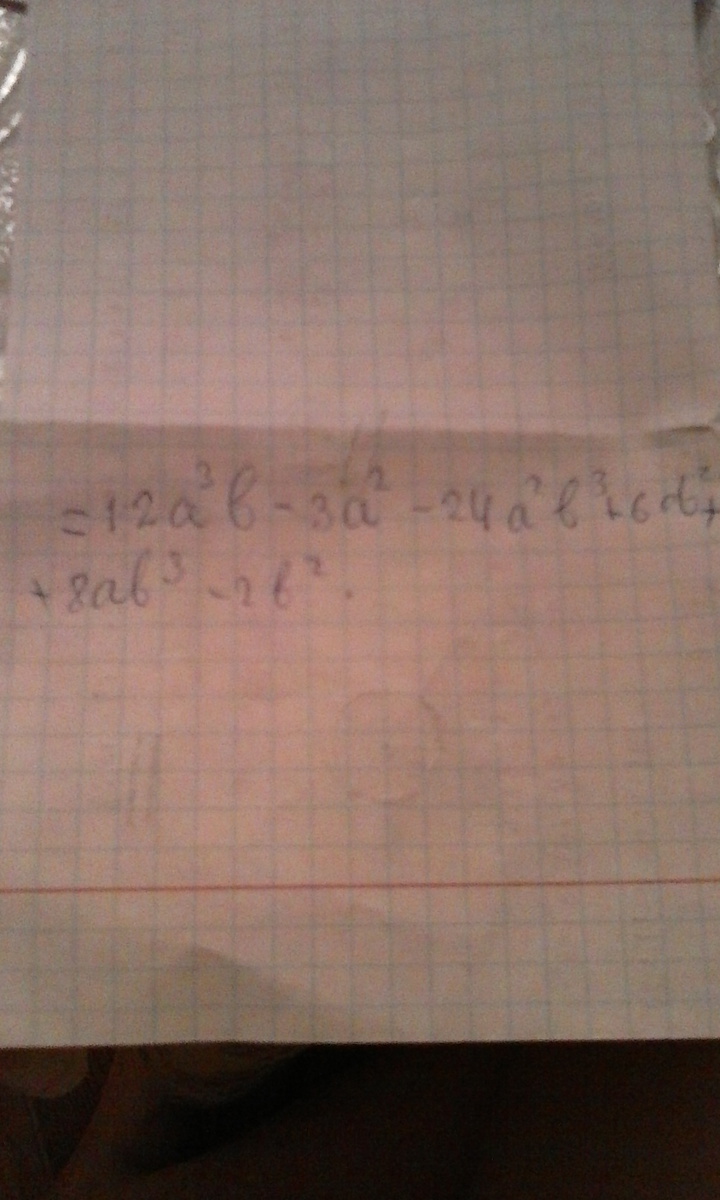 =12a³b-3a²-24a²b³+6ab²+
+8ab³-2b².